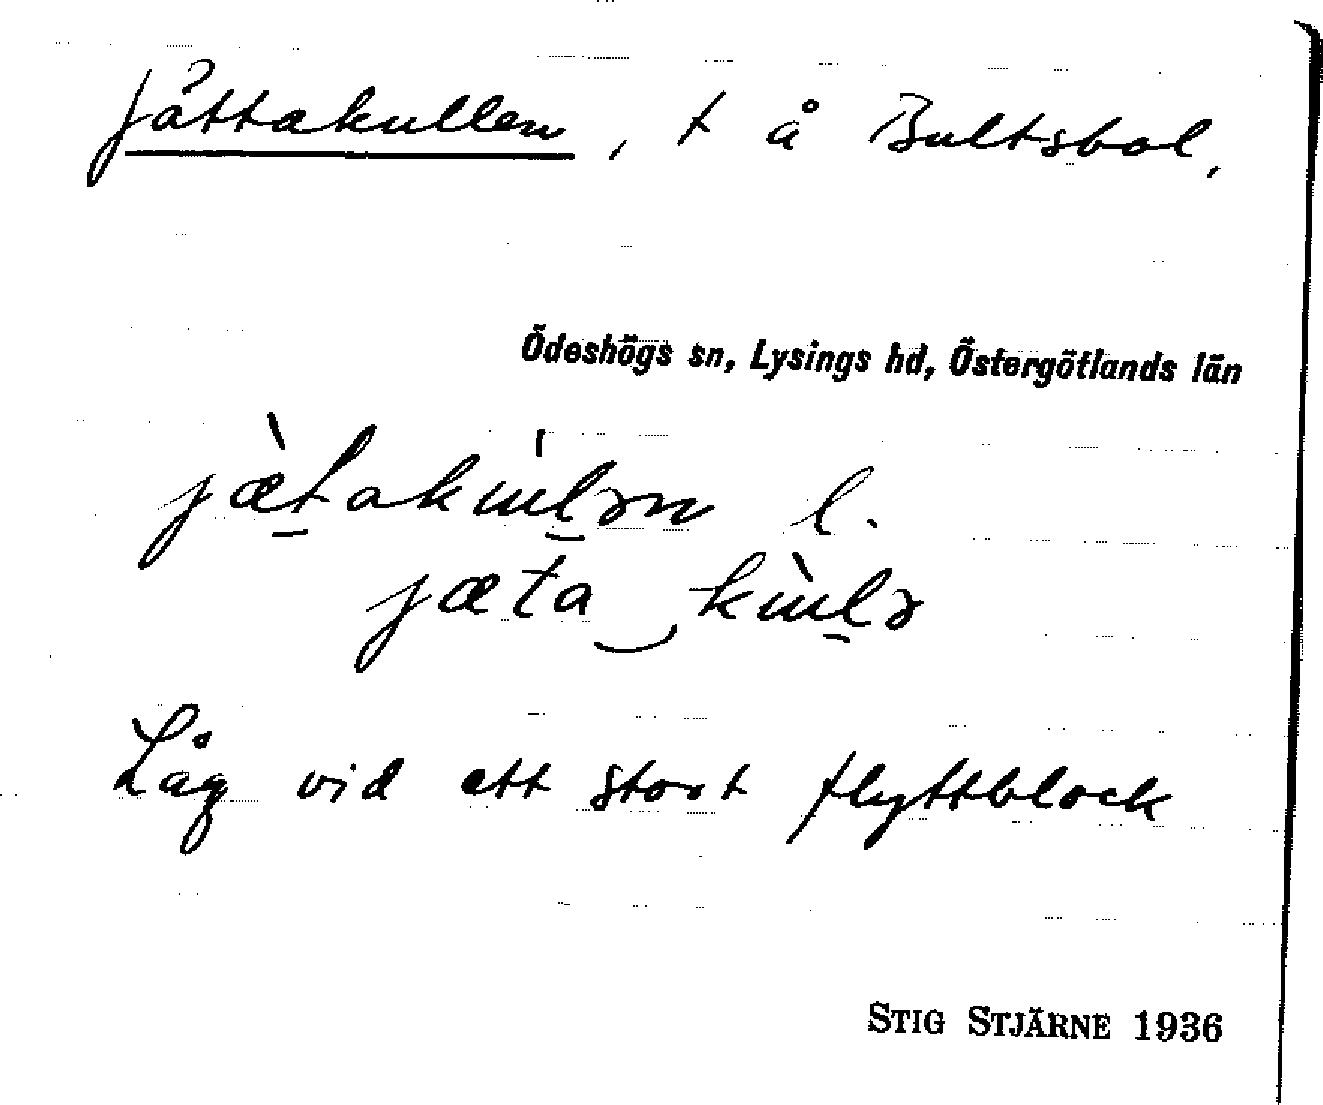 Jättakullen, t å Bultsbol,
Ödeshögs sn, Lysings hd, Östergötlands län
jæ̀takɯ̍lən l.
jæta‿kɯ̀lə
Låg vid ett stort flyttblock
STIG STJÄRNE 1936